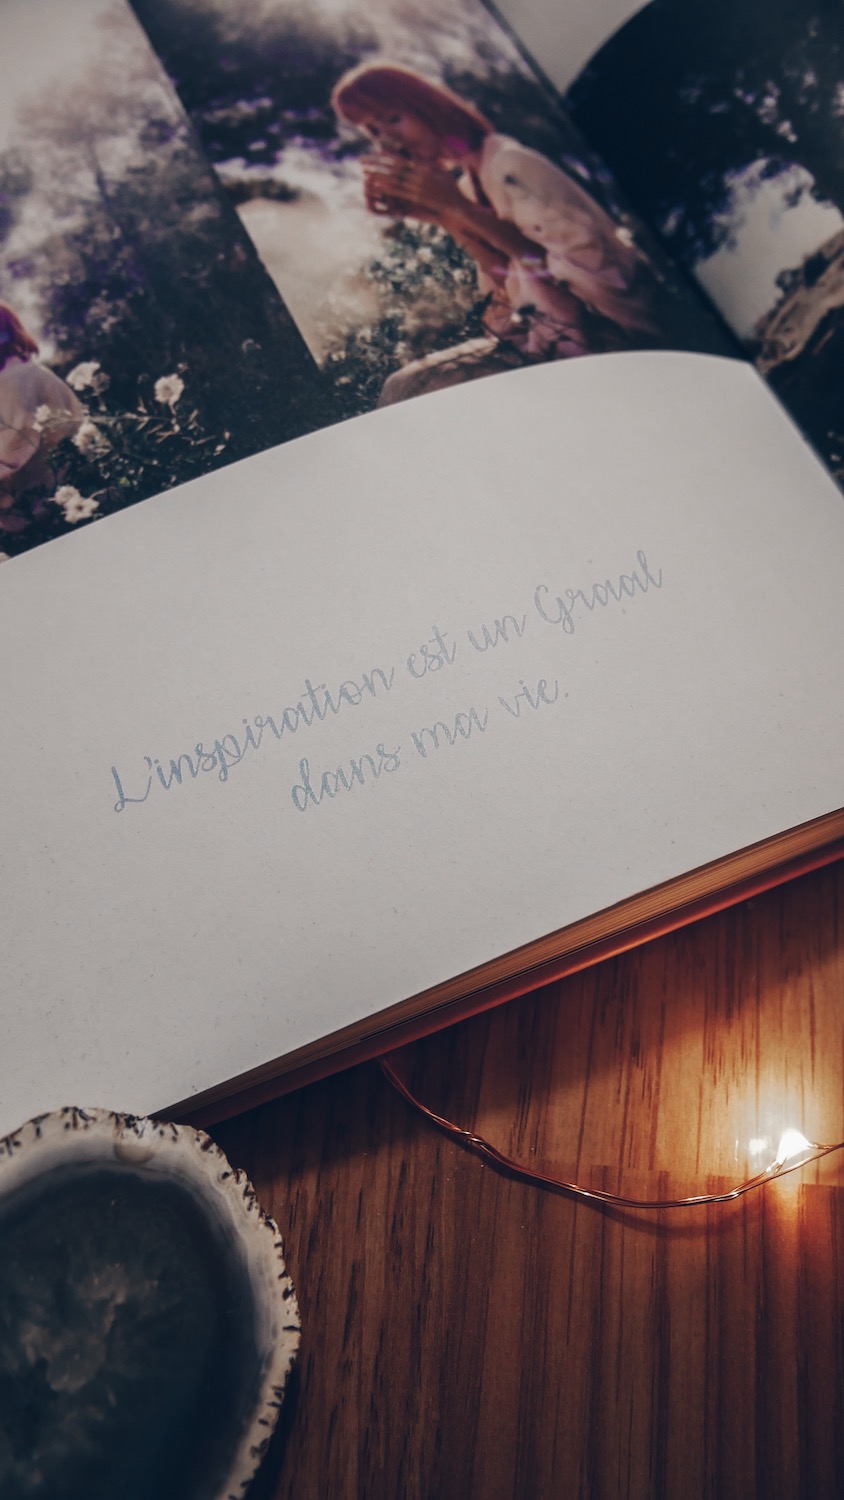 L'inspiration est un Graal
dans ma vie.